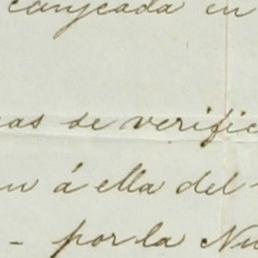 canjeada en
as se verific
n á ella del
- por la Nu